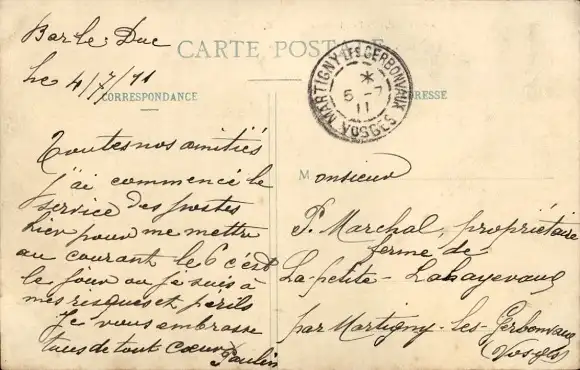 Bar le Duc
le 4/7/11
CARTE POSTALE
CORRESPONDANCE
ADRESSE
MARTIGNY LES GERBONVAUX
* 5 - 7 11
VOSGES
Toutes nos amitiés
j'ai commencé le
service des postes
hier pour me mettre
au courant le 6 c'est
le jour ou je suis à
mes risques et périls
Je vous embrasse
tous de tout cœur
Paulin
Monsieur
P. Marchal, propriétaire
ferme de
La-petite-Lahayevaux
par Martigny-les-Gerbonvaux
(Vosges)